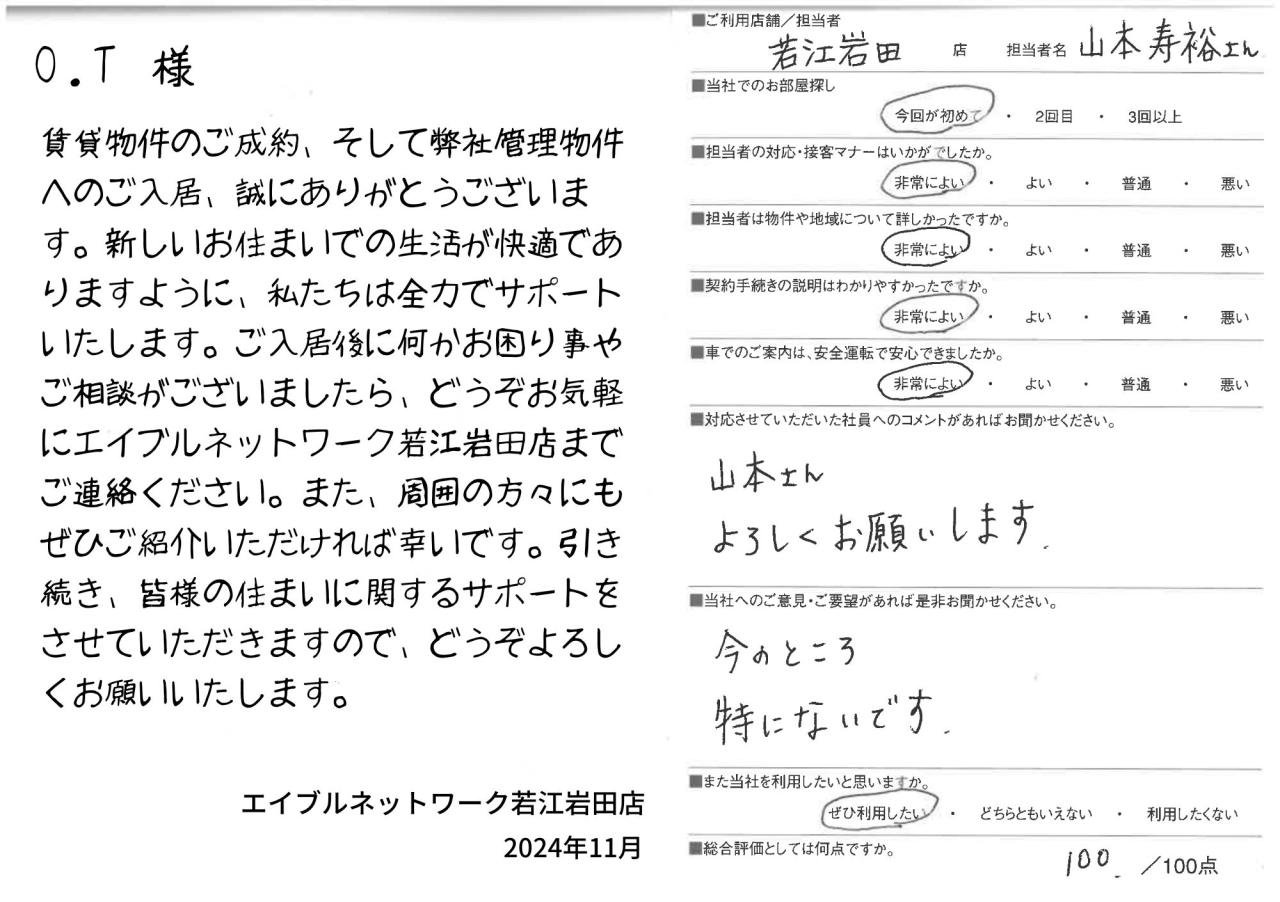 O.T 様
賃貸物件のご成約、そして弊社管理物件
へのご入居、誠にありがとうございま
す。新しいお住まいでの生活が快適であ
りますように、私たちは全力でサポート
いたします。ご入居後に何かお困り事や
ご相談がございましたら、どうぞお気軽
にエイブルネットワーク若江岩田店まで
ご連絡ください。また、周囲の方々にも
ぜひご紹介いただければ幸いです。引き
続き、皆様の住まいに関するサポートを
させていただきますので、どうぞよろし
くお願いいたします。
エイブルネットワーク若江岩田店
2024年11月
■ご利用店舗／担当者
若江岩田 店 担当者名 山本寿裕さん
■当社でのお部屋探し
今回が初めて ・ 2回目 ・ 3回以上
■担当者の対応・接客マナーはいかがでしたか。
非常によい ・ よい ・ 普通 ・ 悪い
■担当者は物件や地域について詳しかったですか。
非常によい ・ よい ・ 普通 ・ 悪い
■契約手続きの説明はわかりやすかったですか。
非常によい ・ よい ・ 普通 ・ 悪い
■車でのご案内は、安全運転で安心できましたか。
非常によい ・ よい ・ 普通 ・ 悪い
■対応させていただいた社員へのコメントがあればお聞かせください。
山本さん
よろしくお願いします.
■当社へのご意見・ご要望があれば是非お聞かせください。
今のところ
特にないです.
■また当社を利用したいと思いますか。
ぜひ利用したい ・ どちらともいえない ・ 利用したくない
■総合評価としては何点ですか。
100. ／100点